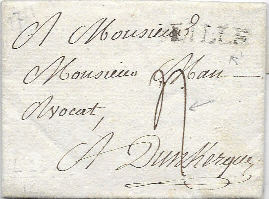 A Monsieur
LILLE
Monsieur Mau
Avocat,
A Dunkerque